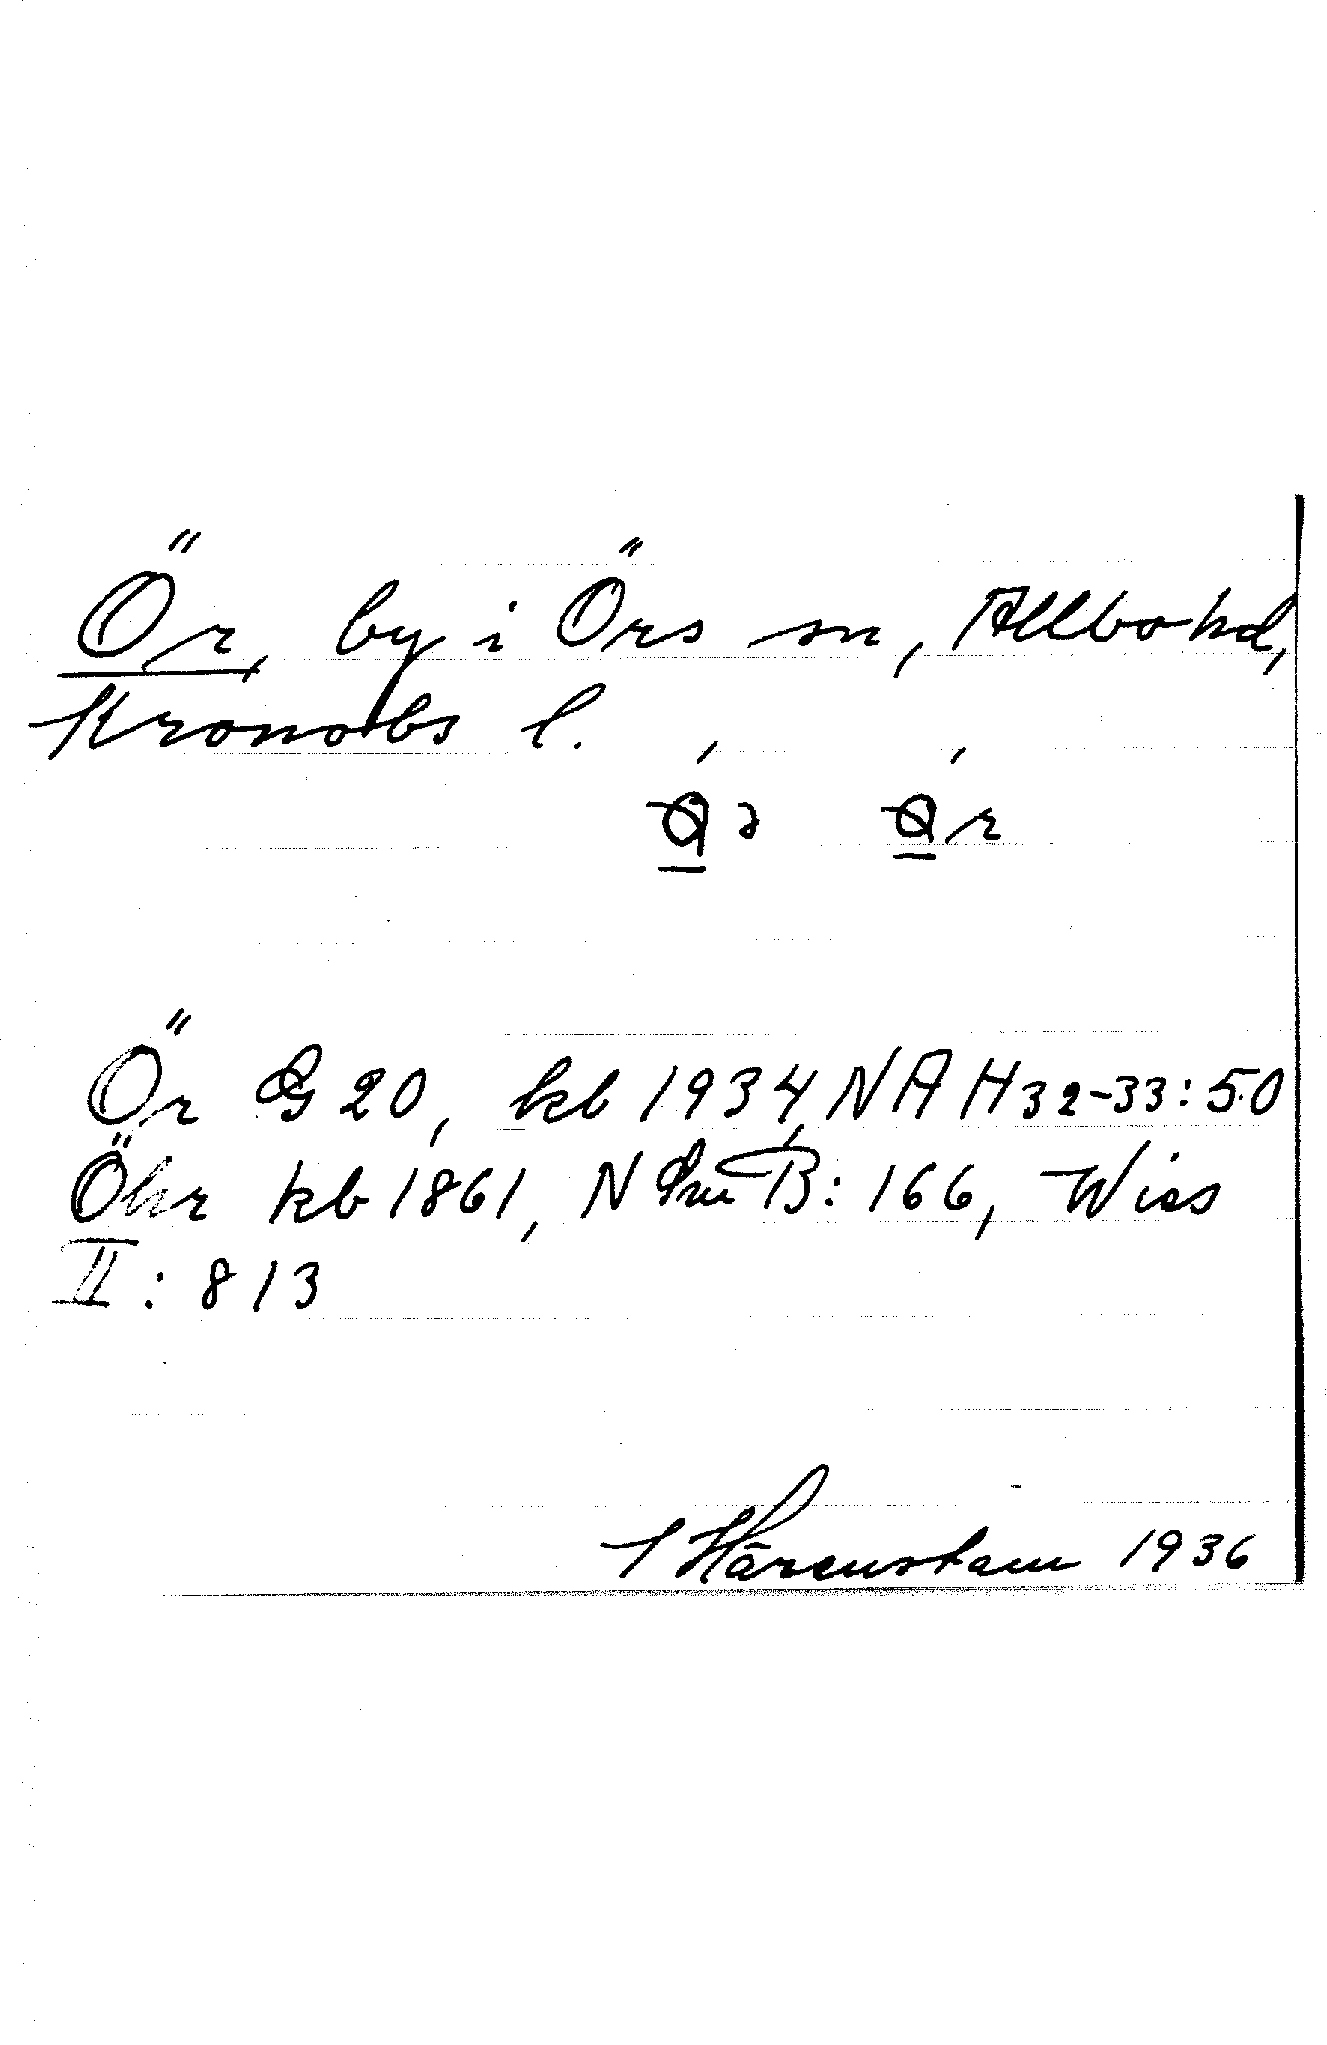 Ör, by i Örs sn, Allbo hd,
Kronobs l.
Ör G 20, kb 1934, NAH 32-33: 50
Öhr kb 1861, N Sm B: 166, Wies
II: 813
Hårenstam 1936